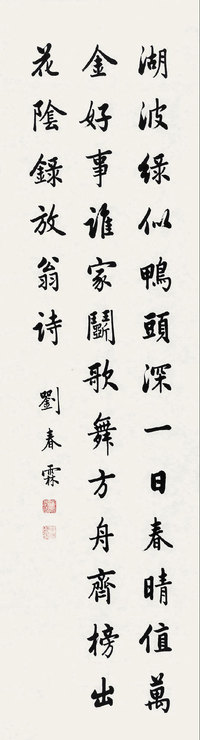 湖波綠似鴨頭深一日春晴值萬
金好事誰家鬭歌舞方舟齊榜出
花陰錄放翁詩
劉春霖